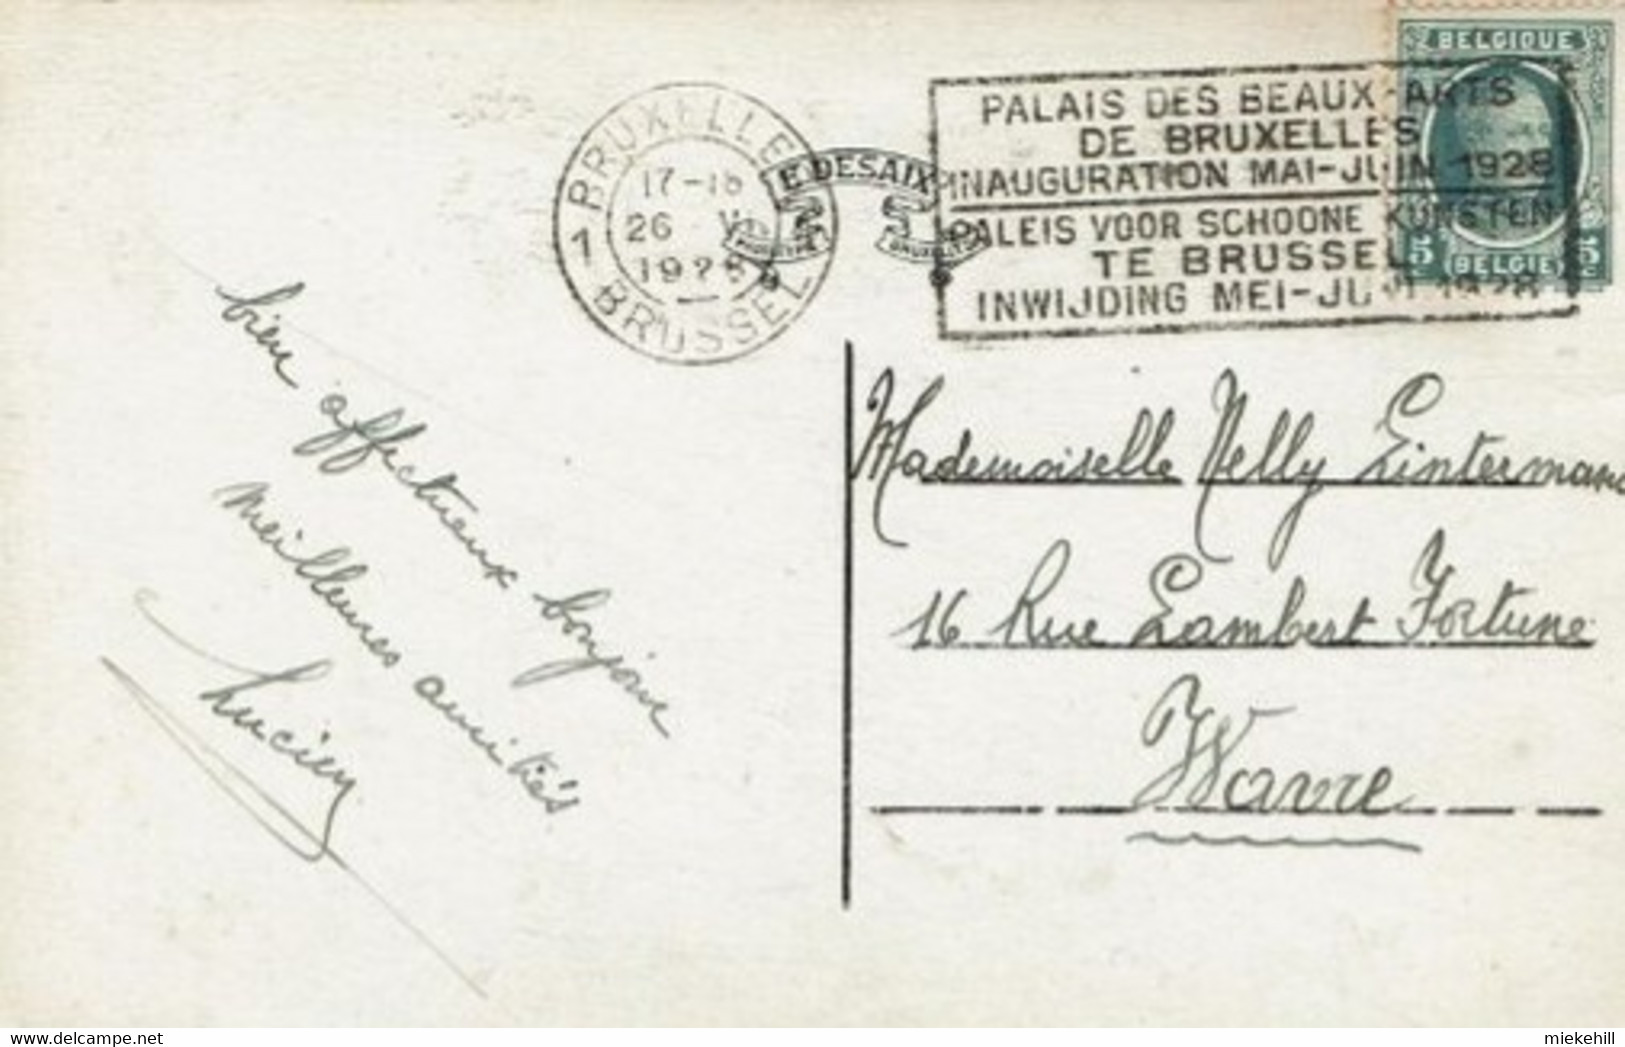 BELGIQUE
PALAIS DES BEAUX-ARTS
DE BRUXELLES
INAUGURATION MAI-JUIN 1928
PALEIS VOOR SCHOONE KUNSTEN
TE BRUSSEL
INWIJDING MEI-JUNI 1928
5c 5c
(BELGIE)
BRUXELLES
17-18
26 V
1928
1 BRUSSEL 1
E. DESAIX
BRUXELLES
bien affectueux bonjour
meilleures amitiés
Lucien
Mademoiselle Nelly Lintermans
16 Rue Lambert Fortune
Wavre
www.delcampe.net
miekehill